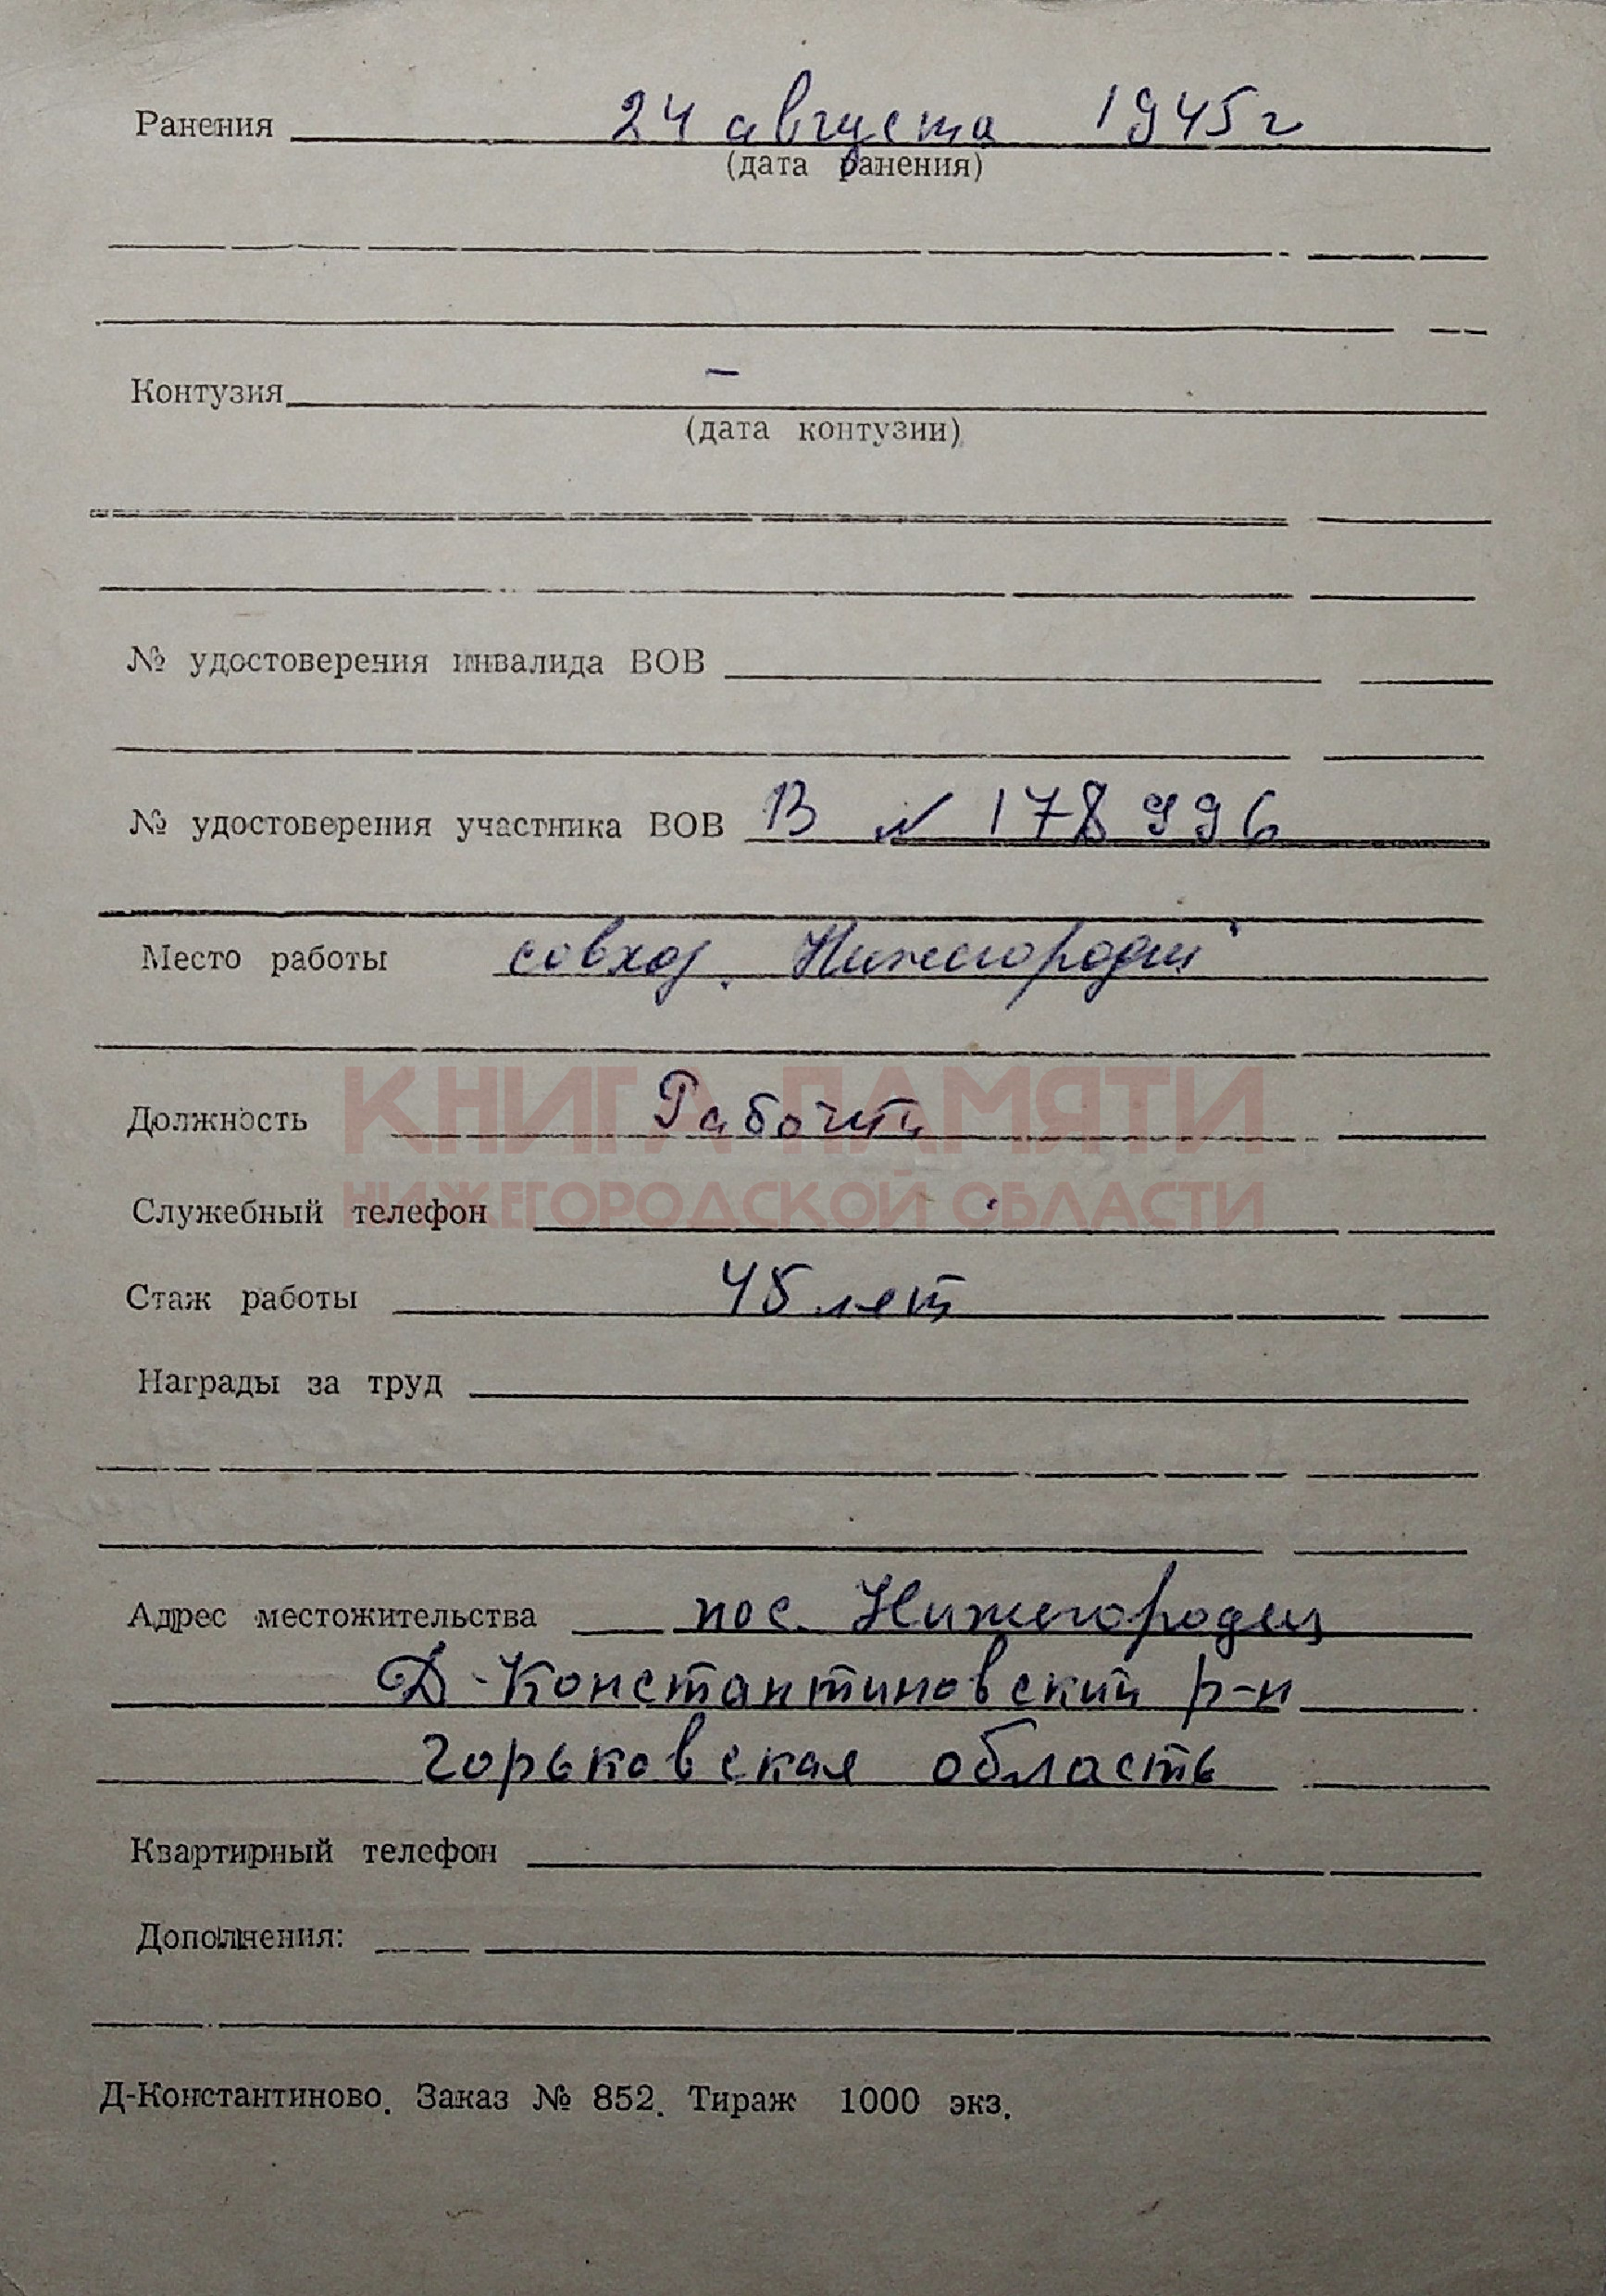 Ранения 24 августа 1945 г
(дата ранения)
Контузия –
(дата контузии)
№ удостоверения инвалида ВОВ
№ удостоверения участника ВОВ В № 178996
Место работы совхоз. Нижегородец
КНИГА ПАМЯТИ
Должность Рабочий
НИЖЕГОРОДСКОЙ ОБЛАСТИ
Служебный телефон
Стаж работы 45 лет
Награды за труд
Адрес местожительства пос. Нижегородец
Д-Константиновский р-н
Горьковская область
Квартирный телефон
Дополнения:
Д-Константиново. Заказ № 852. Тираж 1000 экз.